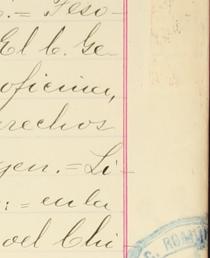 .= Teso-
El C. Ge
oficina,
rechos
gen. = Li-
: = en la
oel Chi